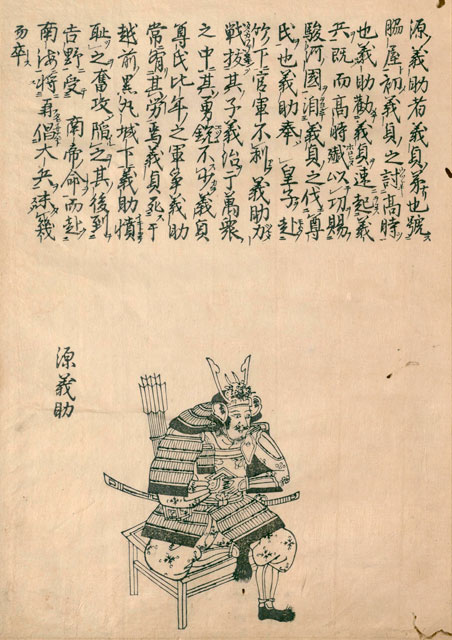 源義助者義貞弟也號
脇屋初義貞之討高時
也義助勸義貞速起義
兵既而高時殲以功賜
駿河國洎義貞之伐尊
氏也義助奉 皇子赴
竹下官軍不利義助力
戰拔其子義治于萬衆
之中其勇銳不少義貞
尊氏比年之軍爭義助
常有其勞焉義貞死于
越前黒丸城下義助憤
恥之奮攻陷之其後到
吉野受 南帝命而赴
南海將再倡大兵未幾
而卒
源義助